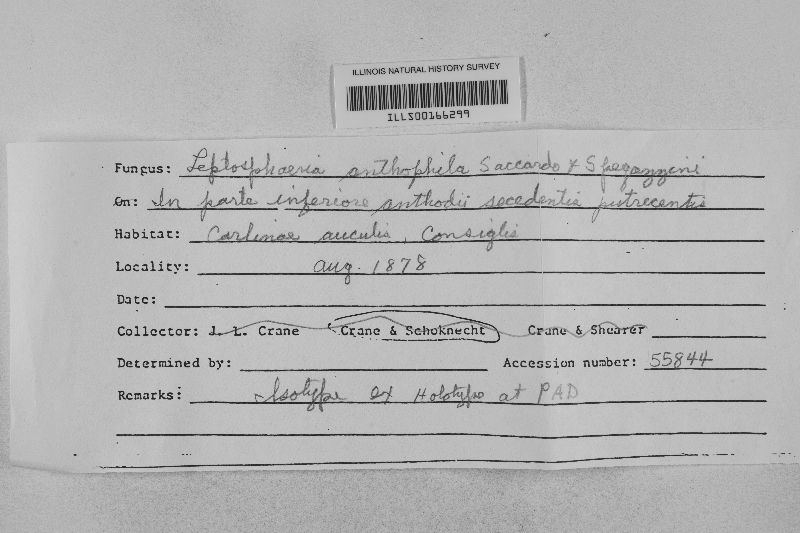 ILLINOIS NATURAL HISTORY SURVEY
ILLS00166299
Fungus: Leptosphaeria anthophila Saccardo & Spegazzini
On: In parte inferiore anthodii secedentis putrecentis
Habitat: Carlinae auculis, Consiglis
Locality: Aug. 1878
Date:
Collector: J. L. Crane Crane & Schoknecht Crane & Shearer
Determined by: Accession number: 55844
Remarks: Isotype ex Holotype at PAD